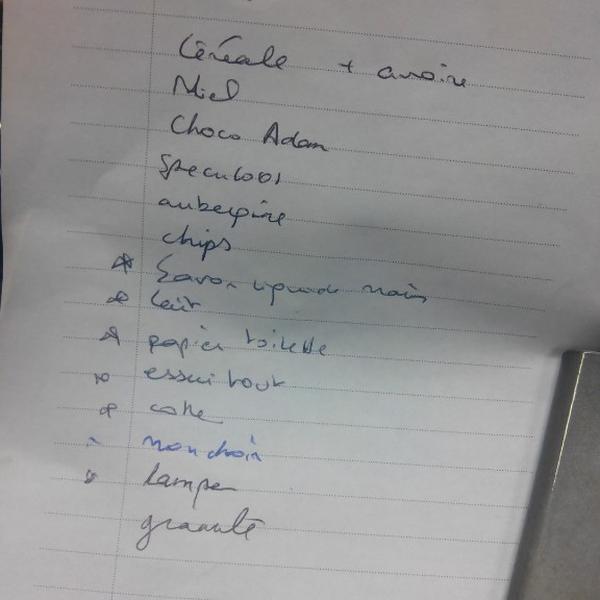 Céréale + avoine
Miel
Choco Adam
Speculoos
aubergine
chips
Savon liquide mains
lait
papier toilette
essui tout
mouchoir
lampe